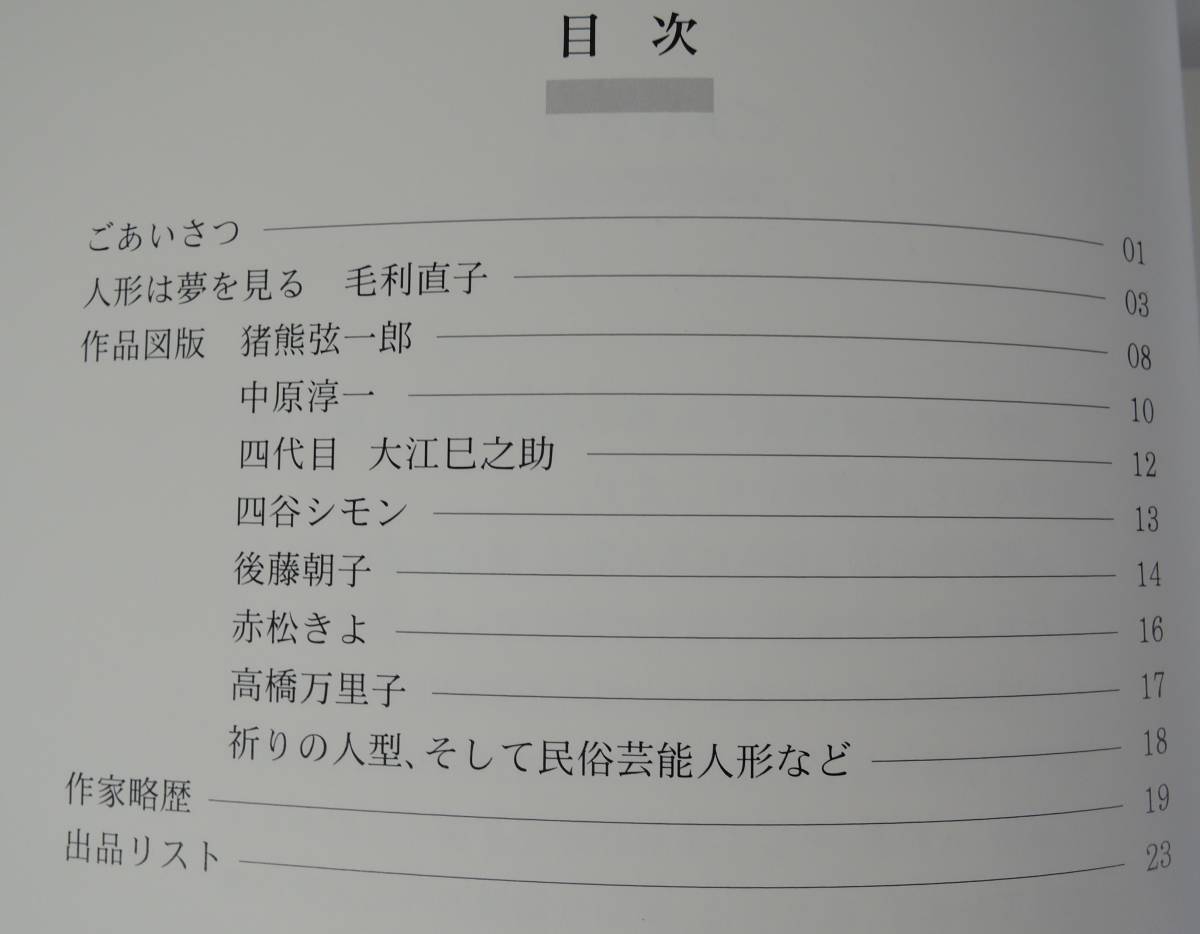 目 次
ごあいさつ 01
人形は夢を見る 毛利直子 03
作品図版 猪熊弦一郎 08
中原淳一 10
四代目 大江巳之助 12
四谷シモン 13
後藤朝子 14
赤松きよ 16
高橋万里子 17
祈りの人型、そして民俗芸能人形など 18
作家略歴 19
出品リスト 23